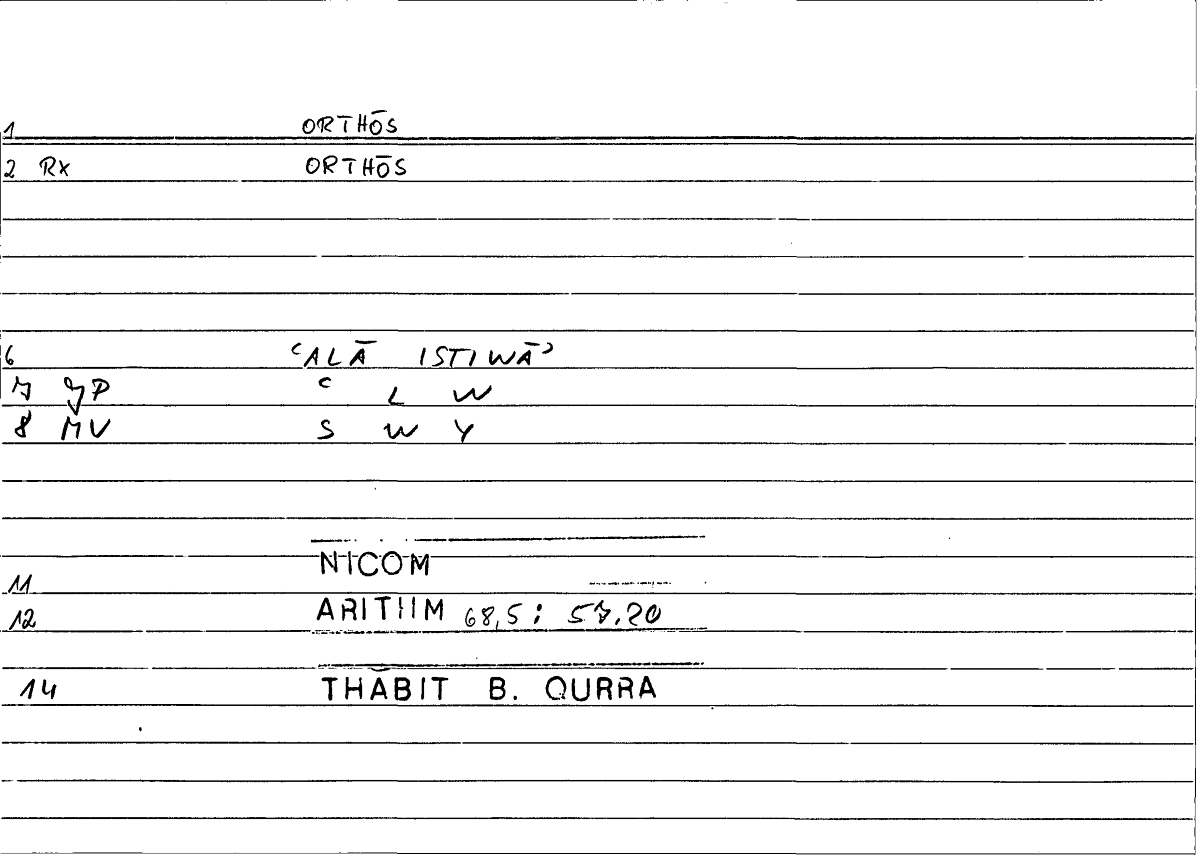 1 ORTHŌS
2 Rx ORTHŌS
6 ʿALĀ ISTIWĀʾ
7 JP ʿ L W
8 MV S W Y
NICOM
11
12 ARITHM 68,5 : 57.20
14 THĀBIT B. QURRA